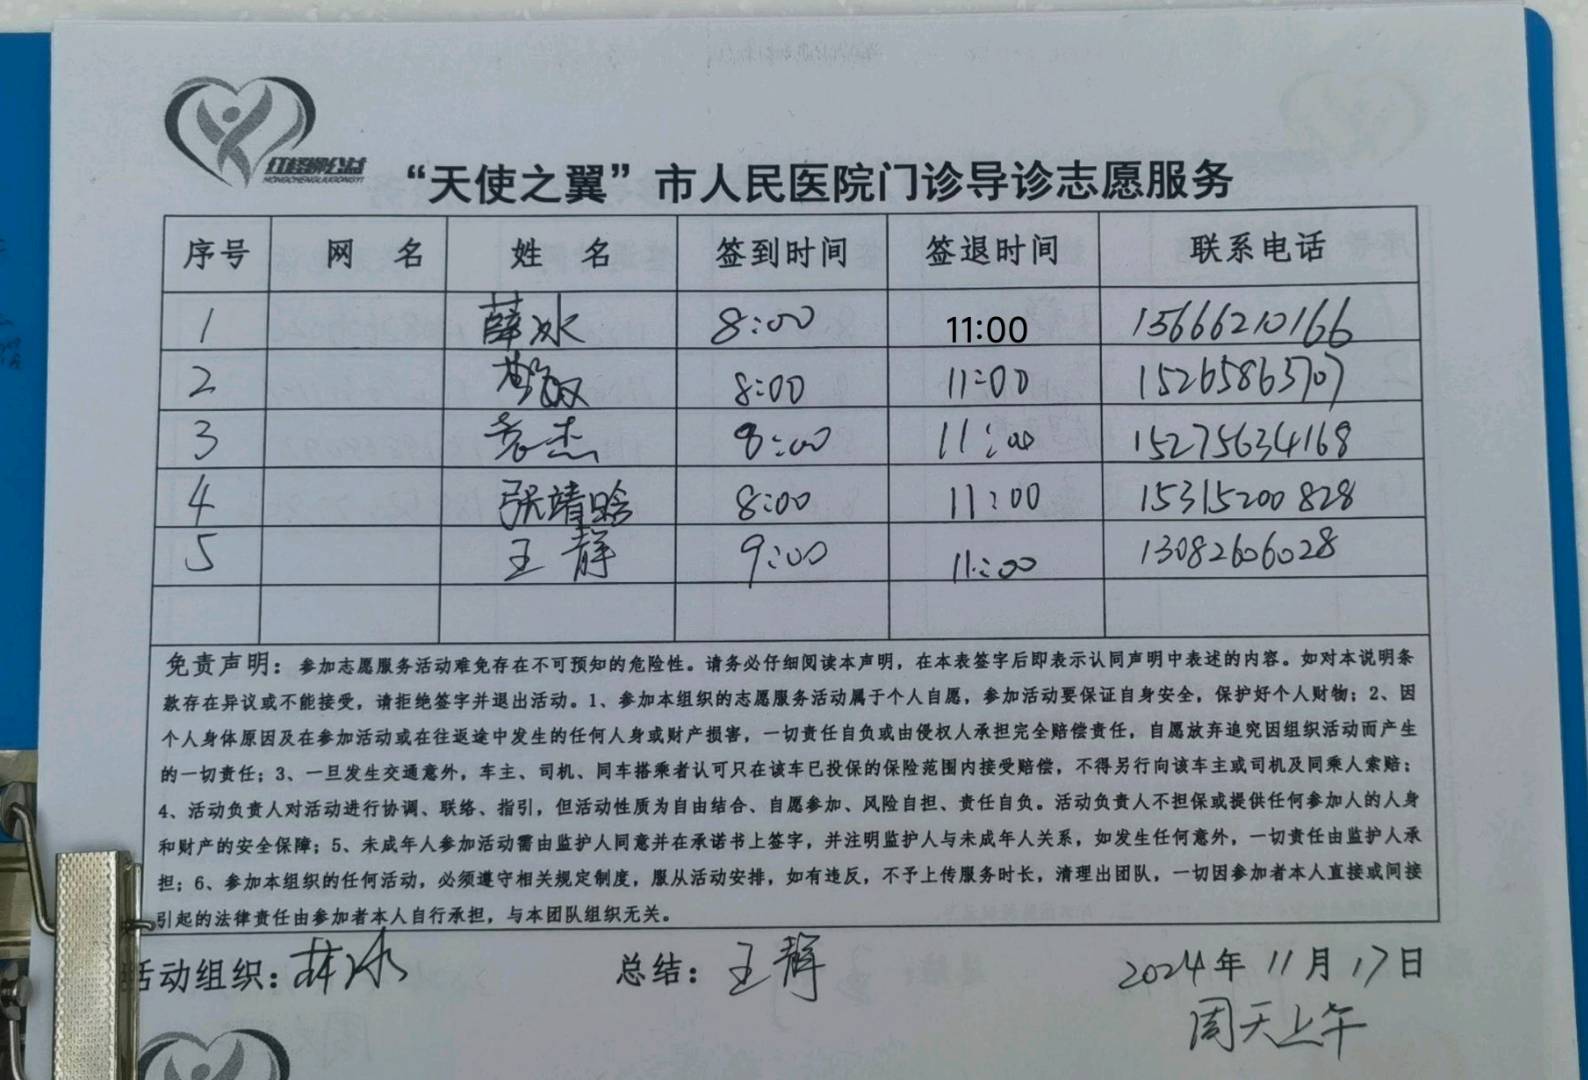 红橙柳公益
HONGCHENGLIUGONGYI
“天使之翼”市人民医院门诊导诊志愿服务
序号 网 名 姓 名 签到时间 签退时间 联系电话
1 薛冰 8:00 11:00 15666210166
2 8:00 11:00 15265863707
3 袁杰 8:00 11:00 15275634168
4 张靖晗 8:00 11:00 15315200828
5 王静 9:00 11:00 13082606028
免责声明：参加志愿服务活动难免存在不可预知的危险性。请务必仔细阅读本声明，在本表签字后即表示认同声明中表述的内容。如对本说明条
款存在异议或不能接受，请拒绝签字并退出活动。1、参加本组织的志愿服务活动属于个人自愿，参加活动要保证自身安全，保护好个人财物；2、因
个人身体原因及在参加活动或在往返途中发生的任何人身或财产损害，一切责任自负或由侵权人承担完全赔偿责任，自愿放弃追究因组织活动而产生
的一切责任；3、一旦发生交通意外，车主、司机、同车搭乘者认可只在该车已投保的保险范围内接受赔偿，不得另行向该车主或司机及同乘人索赔；
4、活动负责人对活动进行协调、联络、指引，但活动性质为自由结合、自愿参加、风险自担、责任自负。活动负责人不担保或提供任何参加人的人身
和财产的安全保障；5、未成年人参加活动需由监护人同意并在承诺书上签字，并注明监护人与未成年人关系，如发生任何意外，一切责任由监护人承
担；6、参加本组织的任何活动，必须遵守相关规定制度，服从活动安排，如有违反，不予上传服务时长，清理出团队，一切因参加者本人直接或间接
引起的法律责任由参加者本人自行承担，与本团队组织无关。
活动组织：薛冰 总结：王静 2024年11月17日
周天上午